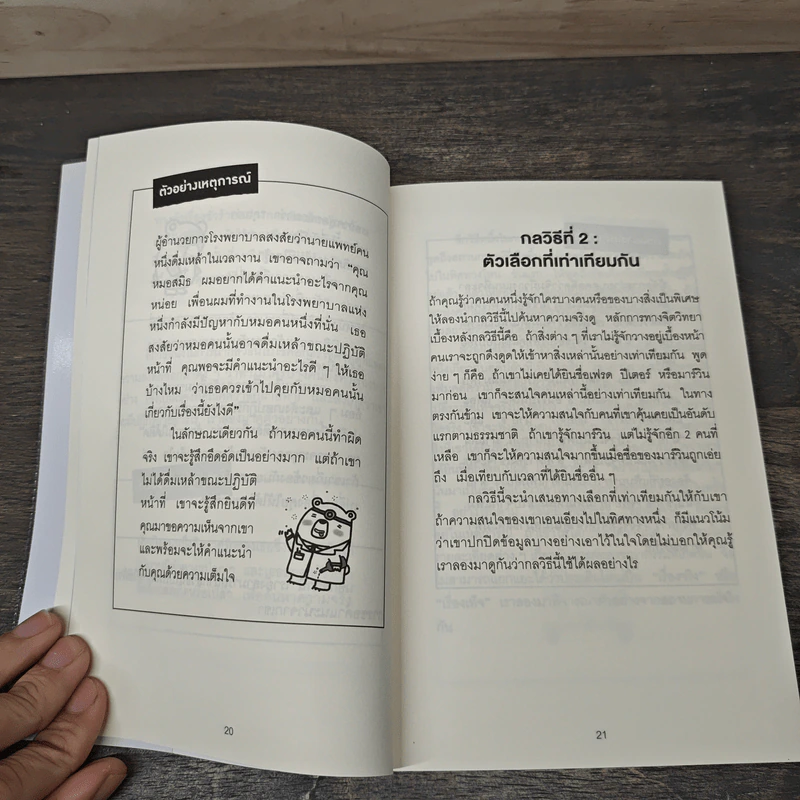 ตัวอย่างเหตุการณ์
ผู้อำนวยการโรงพยาบาลสงสัยว่านายแพทย์คน
หนึ่งดื่มเหล้าในเวลางาน เขาอาจถามว่า “คุณ
หมอสมิธ ผมอยากได้คำแนะนำอะไรจากคุณ
หน่อย เพื่อนผมที่ทำงานในโรงพยาบาลแห่ง
หนึ่งกำลังมีปัญหากับหมอคนหนึ่งที่นั่น เธอ
สงสัยว่าหมอคนนั้นอาจดื่มเหล้าขณะปฏิบัติ
หน้าที่ คุณพอจะมีคำแนะนำอะไรดี ๆ ให้เธอ
บ้างไหม ว่าเธอควรเข้าไปคุยกับหมอคนนั้น
เกี่ยวกับเรื่องนี้ยังไงดี”
ในลักษณะเดียวกัน ถ้าหมอคนนี้ทำผิด
จริง เขาจะรู้สึกอึดอัดเป็นอย่างมาก แต่ถ้าเขา
ไม่ได้ดื่มเหล้าขณะปฏิบัติ
หน้าที่ เขาจะรู้สึกยินดีที่
คุณมาขอความเห็นจากเขา
และพร้อมจะให้คำแนะนำ
กับคุณด้วยความเต็มใจ
20
กลวิธีที่ 2 :
ตัวเลือกที่เท่าเทียมกัน
ถ้าคุณรู้ว่าคนคนหนึ่งรู้จักใครบางคนหรือของบางสิ่งเป็นพิเศษ
ให้ลองนำกลวิธีนี้ไปค้นหาความจริงดู หลักการทางจิตวิทยา
เบื้องหลังกลวิธีนี้คือ ถ้าสิ่งต่าง ๆ ที่เราไม่รู้จักวางอยู่เบื้องหน้า
คนเราจะถูกดึงดูดให้เข้าหาสิ่งเหล่านั้นอย่างเท่าเทียมกัน พูด
ง่าย ๆ ก็คือ ถ้าเขาไม่เคยได้ยินชื่อเฟรด ปีเตอร์ หรือมาร์วิน
มาก่อน เขาก็จะสนใจคนเหล่านี้อย่างเท่าเทียมกัน ในทาง
ตรงกันข้าม เขาจะให้ความสนใจกับคนที่เขาคุ้นเคยเป็นอันดับ
แรกตามธรรมชาติ ถ้าเขารู้จักมาร์วิน แต่ไม่รู้จักอีก 2 คนที่
เหลือ เขาก็จะให้ความสนใจมากขึ้นเมื่อชื่อของมาร์วินถูกเอ่ย
ถึง เมื่อเทียบกับเวลาที่ได้ยินชื่ออื่น ๆ
กลวิธีนี้จะนำเสนอทางเลือกที่เท่าเทียมกันให้กับเขา
ถ้าความสนใจของเขาเอนเอียงไปในทิศทางหนึ่ง ก็มีแนวโน้ม
ว่าเขาปกปิดข้อมูลบางอย่างเอาไว้ในใจโดยไม่บอกให้คุณรู้
เราลองมาดูกันว่ากลวิธีนี้ใช้ได้ผลอย่างไร
21